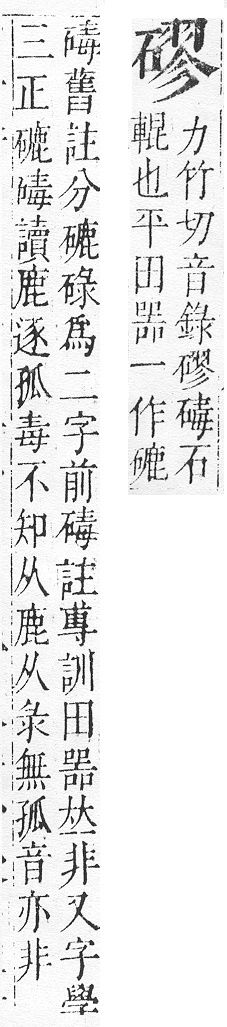 磟
力竹切音錄磟碡石
輥也平田器一作磟
碡舊註分磟碌為二字前碡註專訓田器𠀤非又字學
三正磟碡讀鹿逐孤毒不知从鹿从彔無孤音亦非